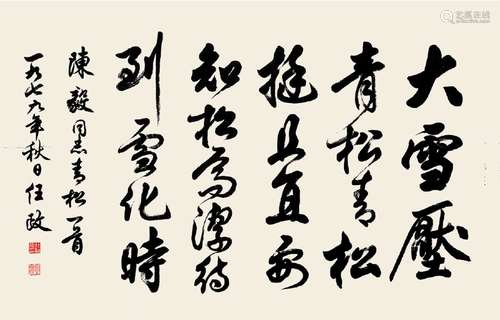 大雪壓
青松青松
挺且直要
知松高潔待
到雪化時
陳毅同志青松一首
一九七九年秋日任政